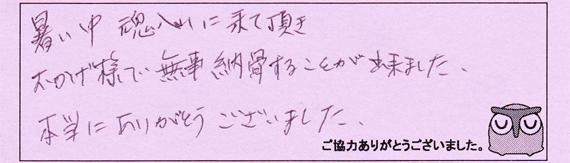 暑い中 魂入れに来て頂き
おかげ様で 無事 納骨することが出来ました、
本当に ありがとう ございました、
ご協力ありがとうございました。